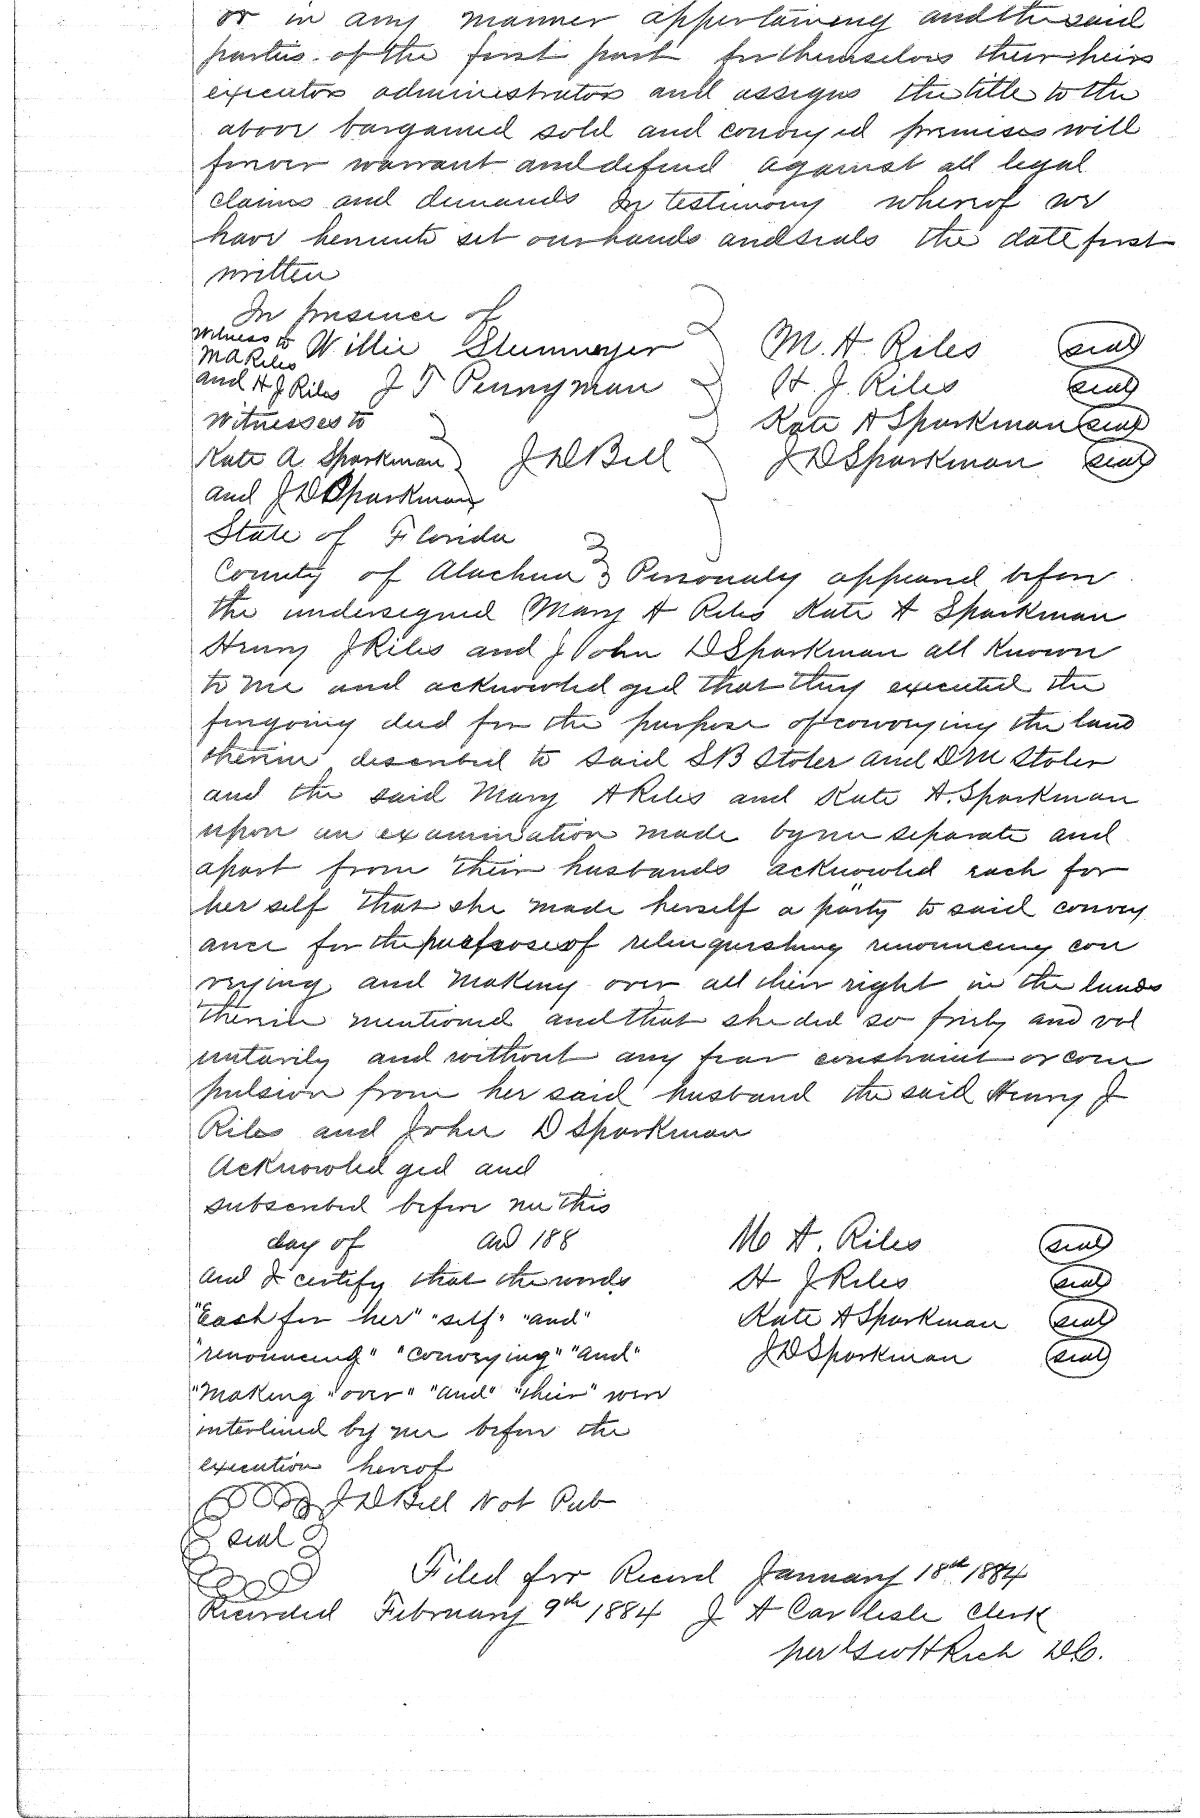 or in any manner appertaining and the said
parties of the first part for themselves their heirs
executors administrators and assigns the title to the
above bargained sold and conveyed premises will
forever warrant and defend against all legal
claims and demands In testimony whereof we
have hereunto set our hands and seals the date first
written
In presence of
witness to M A Riles and H J Riles Willie M. A. Riles seal
J T Pennyman H. J. Riles seal
Witnesses to Kate A Sparkman seal
Kate A Sparkman J D Bell J D Sparkman seal
and J D Sparkman
State of Florida
County of Alachua Personaly appeared before
the undersigned Mary A Riles Kate A Sparkman
Henry J Riles and John D Sparkman all Known
to me and acknowledged that they executed the
foregoing deed for the purpose of conveying the land
therein described to said S B Stoler and D M Stoler
and the said Mary A Riles and Kate A. Sparkman
upon an examination made by me separate and
apart from their husbands acknowled each for
her self that she made herself a party to said convey
ance for the purpose of relinquishing renouncing con
veying and making over all their right in the lands
therein mentioned and that she did so freely and vol
untarily and without any fear constraint or com
pulsion from her said husband the said Henry J
Riles and John D Sparkman
Acknowledged and
subscribed before me this
day of AD 188 M A. Riles seal
and I certify that the words H J Riles seal
"Each for her" "self" "and" Kate A Sparkman seal
"renouncing" "conveying" "and" J D Sparkman seal
"Making "over" "and" "their" were
interlined by me before the
execution hereof
J D Bell Not Pub
seal
Filed for Record January 18th 1884
Recorded February 9th 1884 J A Carlisle Clerk
per Geo H Rich D.C.